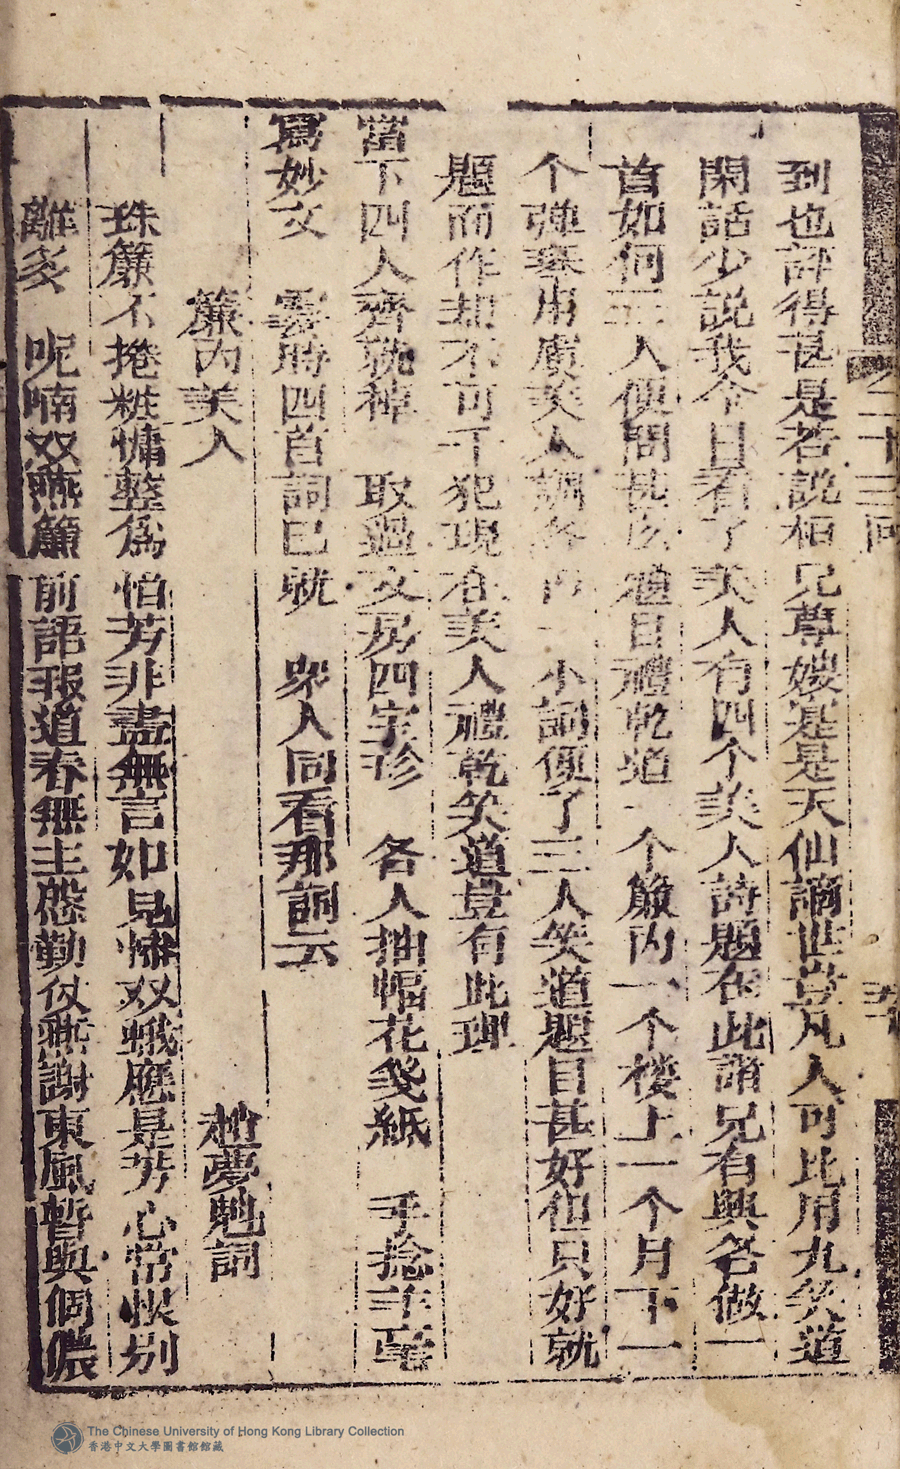 之二十三回
到也評得甚是若說栢兄尊嫂寔是天仙謫世豈凡人可比用九笑道
閑話少說我今日看了美人有四个美人詩題在此諸兄有興各做一
首如何三人便問甚么題目禮乾道一个簾内一个樓上一个月下一
个彈琴用廣美人調各 一小詞便了三人笑道題目甚好但只好就
題而作却不可干犯現在美人禮乾笑道豈有此理
當下四人齊就棹 取過文房四宝珍 各人抽幅花箋紙 手捻羊毫
寫妙文 霎時四首詞已就 衆人同看那詞云
簾内美人 趙夢魁詞
珠簾不捲粧慵整爲怕芳非盡無言如見悚双蛾應是芳心常恨别
離多 呢喃双燕簾前語報道春無主慇勤仗燕謝東風暫與個儂
The Chinese University of Hong Kong Library Collection
香港中文大學圖書館館藏